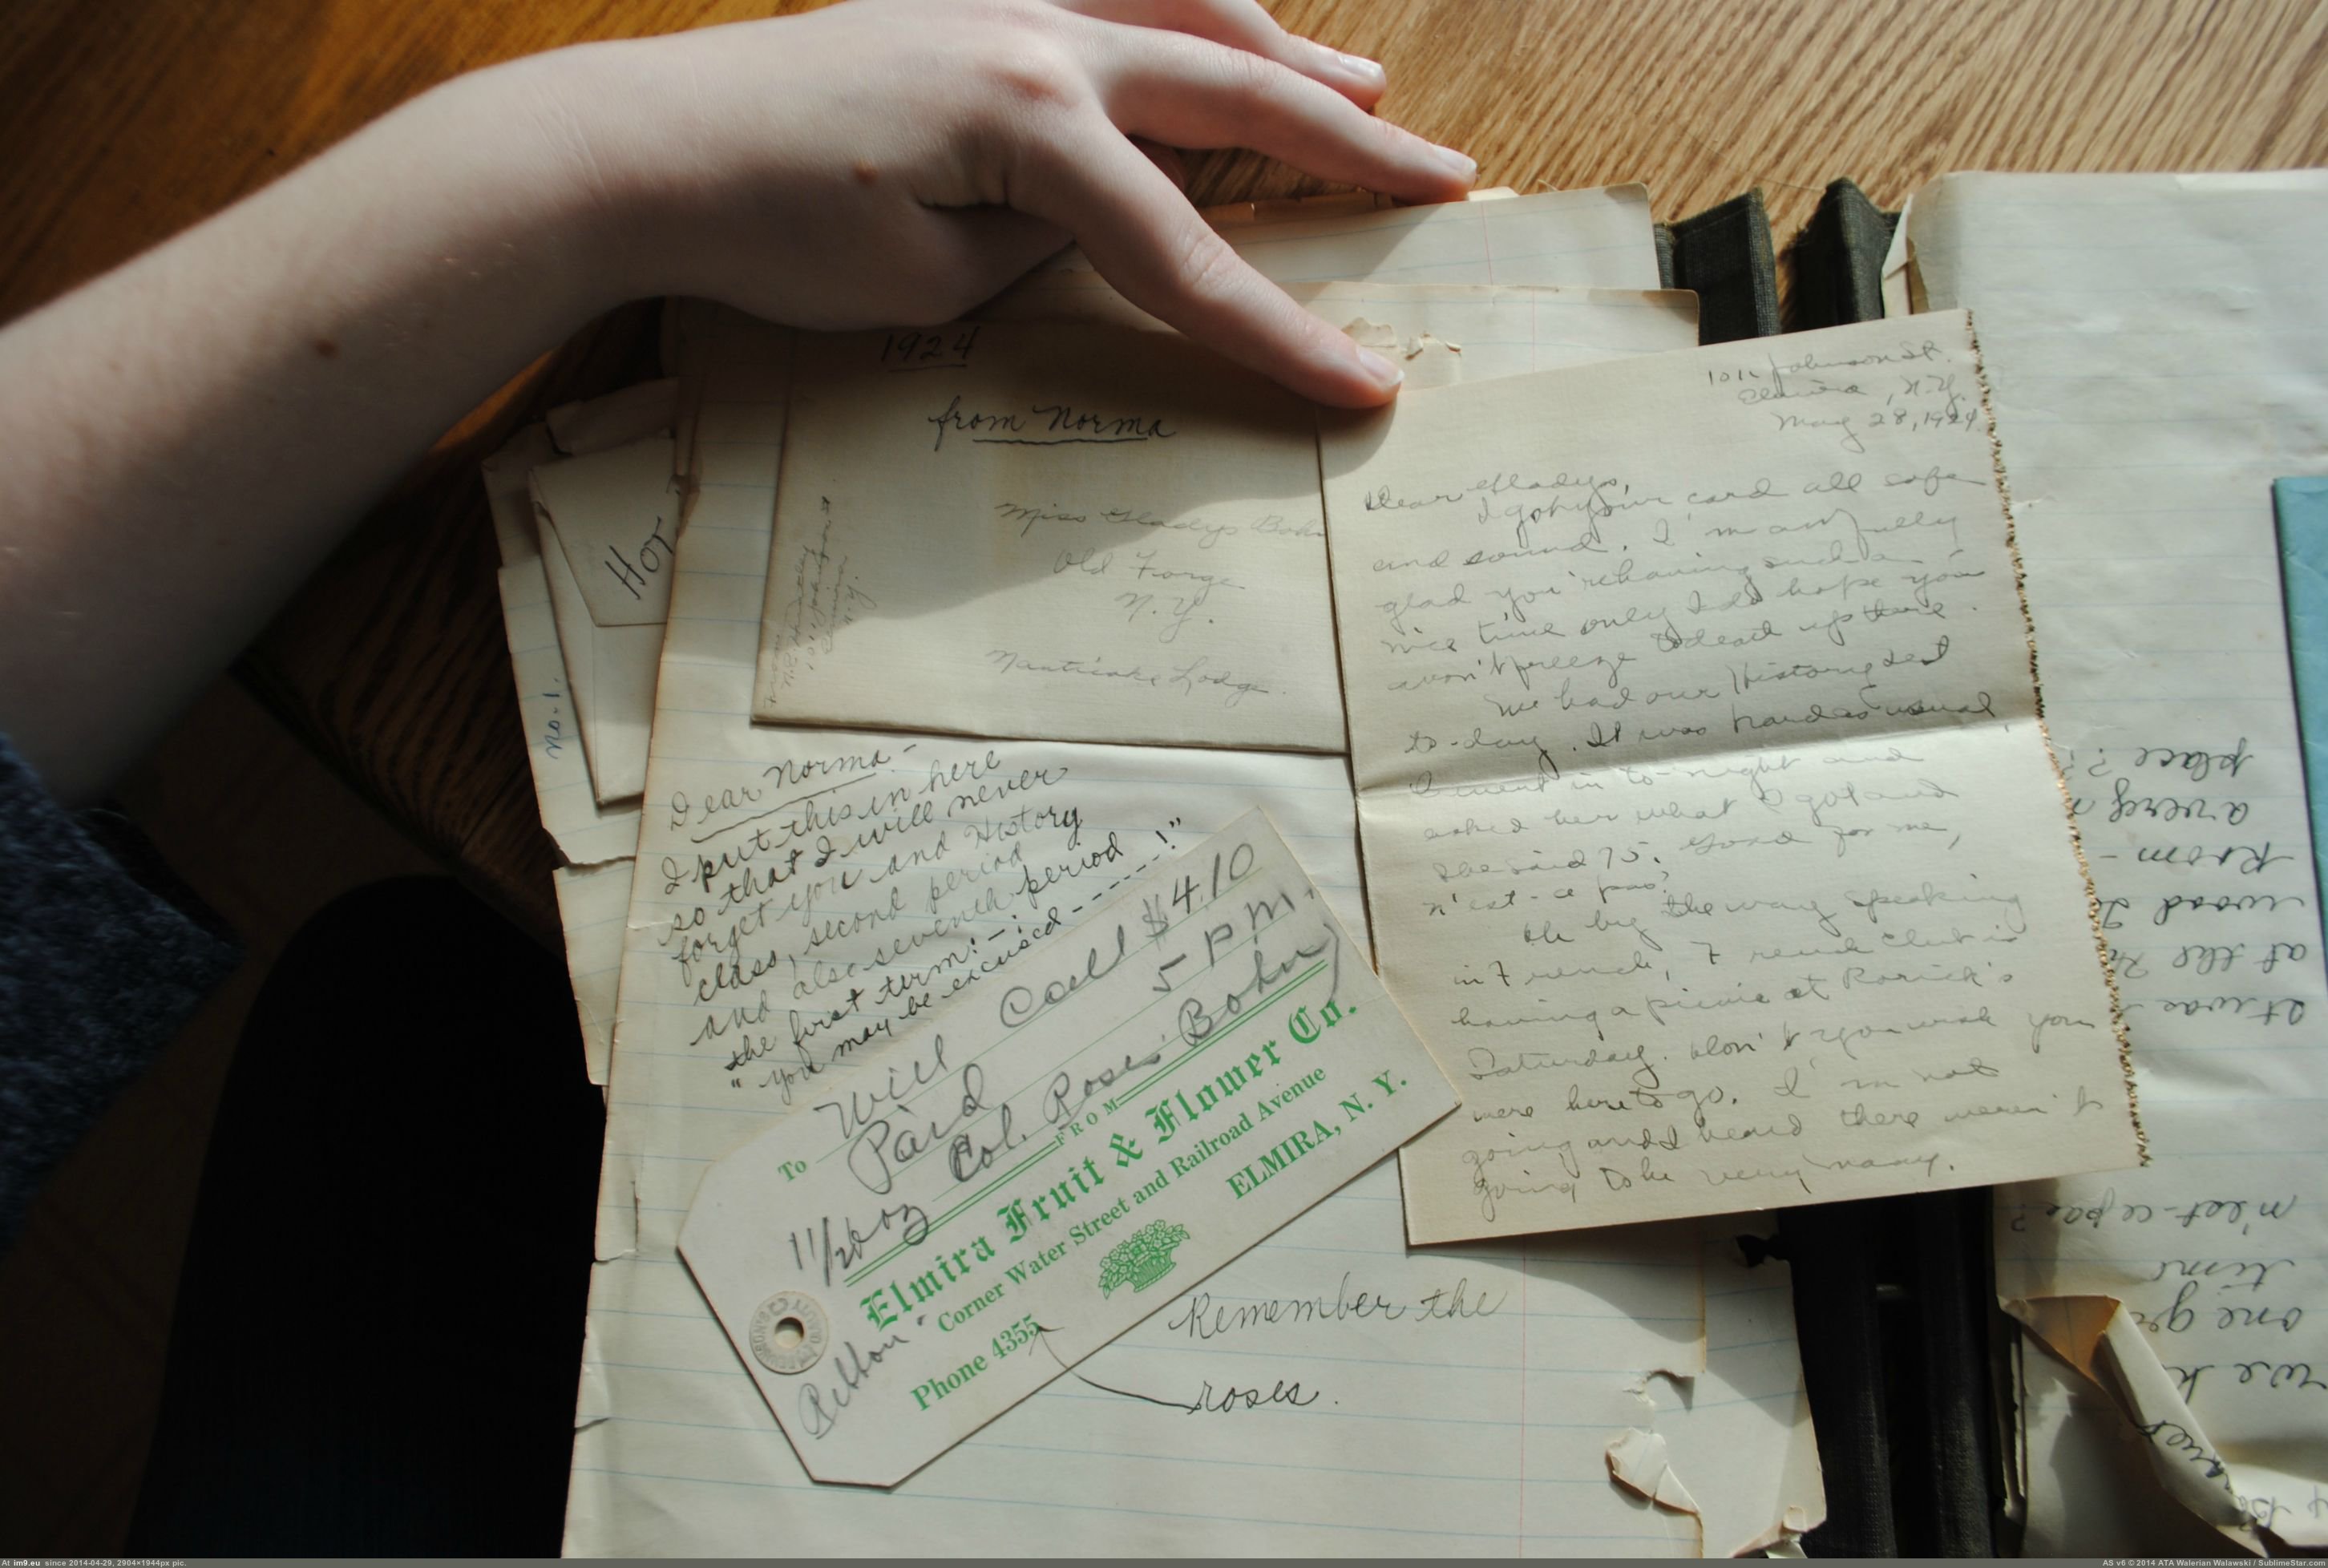 1924
from Norma
Miss Gladys Bohn
Old Forge
N.Y.
Elmira
N.Y.
Hor
No. 1.
Dear Norma -
I put this in here
so that I will never
forget you and History
class, second period
and also seventh period
the first term: - :
" you may be excused - - - - - - !"
To
Will Call $4.10
Paid 5 P M.
Col. Roses. Bohn
FROM
Elmira Fruit & Flower Co.
Corner Water Street and Railroad Avenue
Phone 4355
ELMIRA, N. Y.
Remember the
roses.
Johnson St.
Elmira, N.Y.
May 28, 1924
Dear Gladys,
I got your card all safe
and sound. I'm awfully
glad you're having such a
nice time only I do hope you
won't freeze to death up there.
We had our History test
to-day. It was hard as usual.
I went in to-night and
asked her what I got and
she said 75. Good for me,
n'est-ce pas?
Oh by the way speaking
in French, French Club is
having a picnic at Rorick's
Saturday. Don't you wish you
were here to go. I'm not
going and I heard there weren't
going to be very many.
place?
a very
Room -
wood
at the
It was
n'est-ce pas?
time
one
we
At im9.eu since 2014-04-29, 2904×1944px pic.
AS v6 © 2014 ATA Walerian Walawski / SublimeStar.com